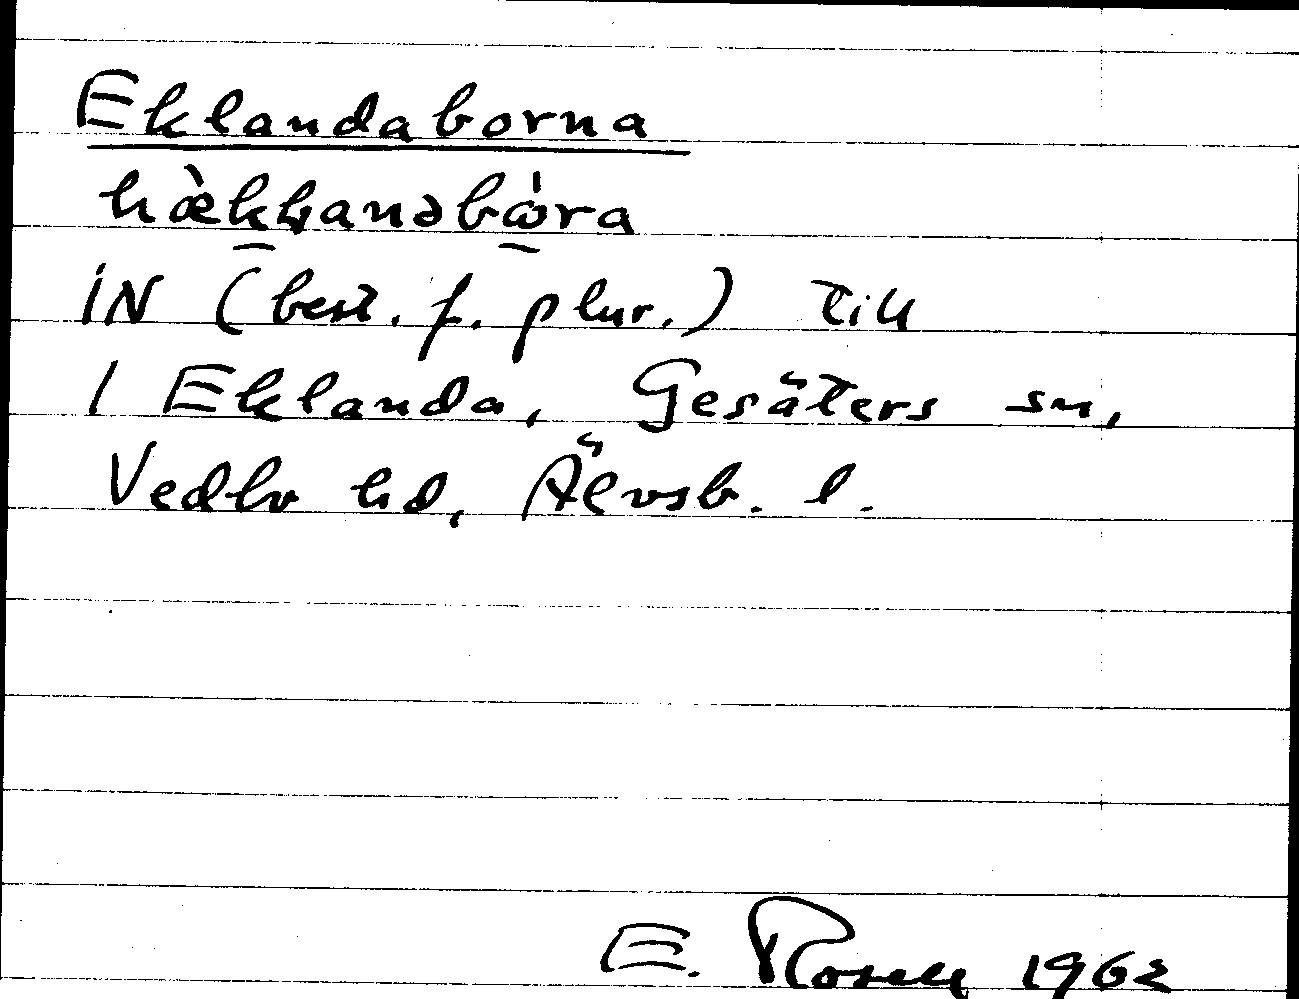 Eklandaborna
IN (best. f. plur.) till
/ Eklanda, Gesäters sn,
Vedbo hd, Älvsb. l.
E. Rosell 1962